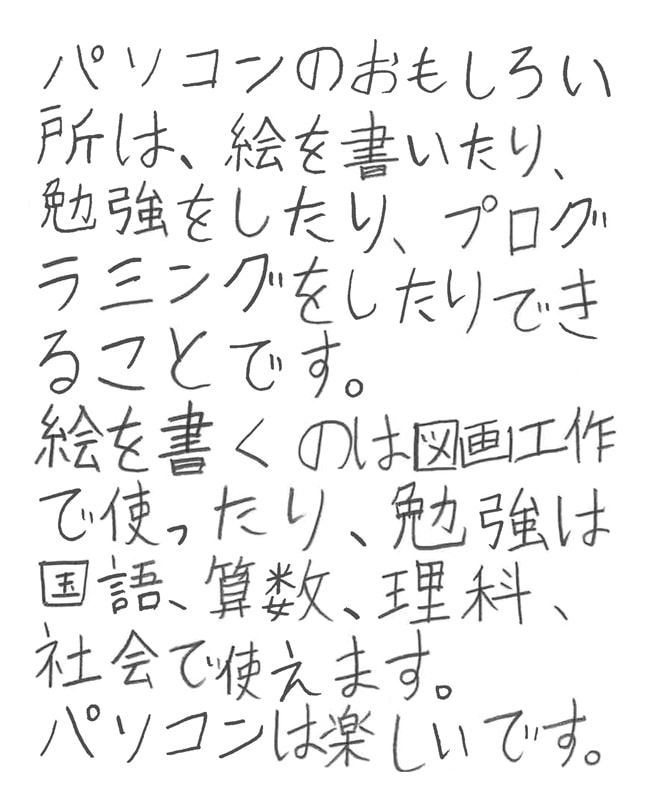 パソコンのおもしろい
所は、絵を書いたり、
勉強をしたり、プログ
ラミングをしたりでき
ることです。
絵を書くのは図画工作
で使ったり、勉強は
国語、算数、理科、
社会で使えます。
パソコンは楽しいです。